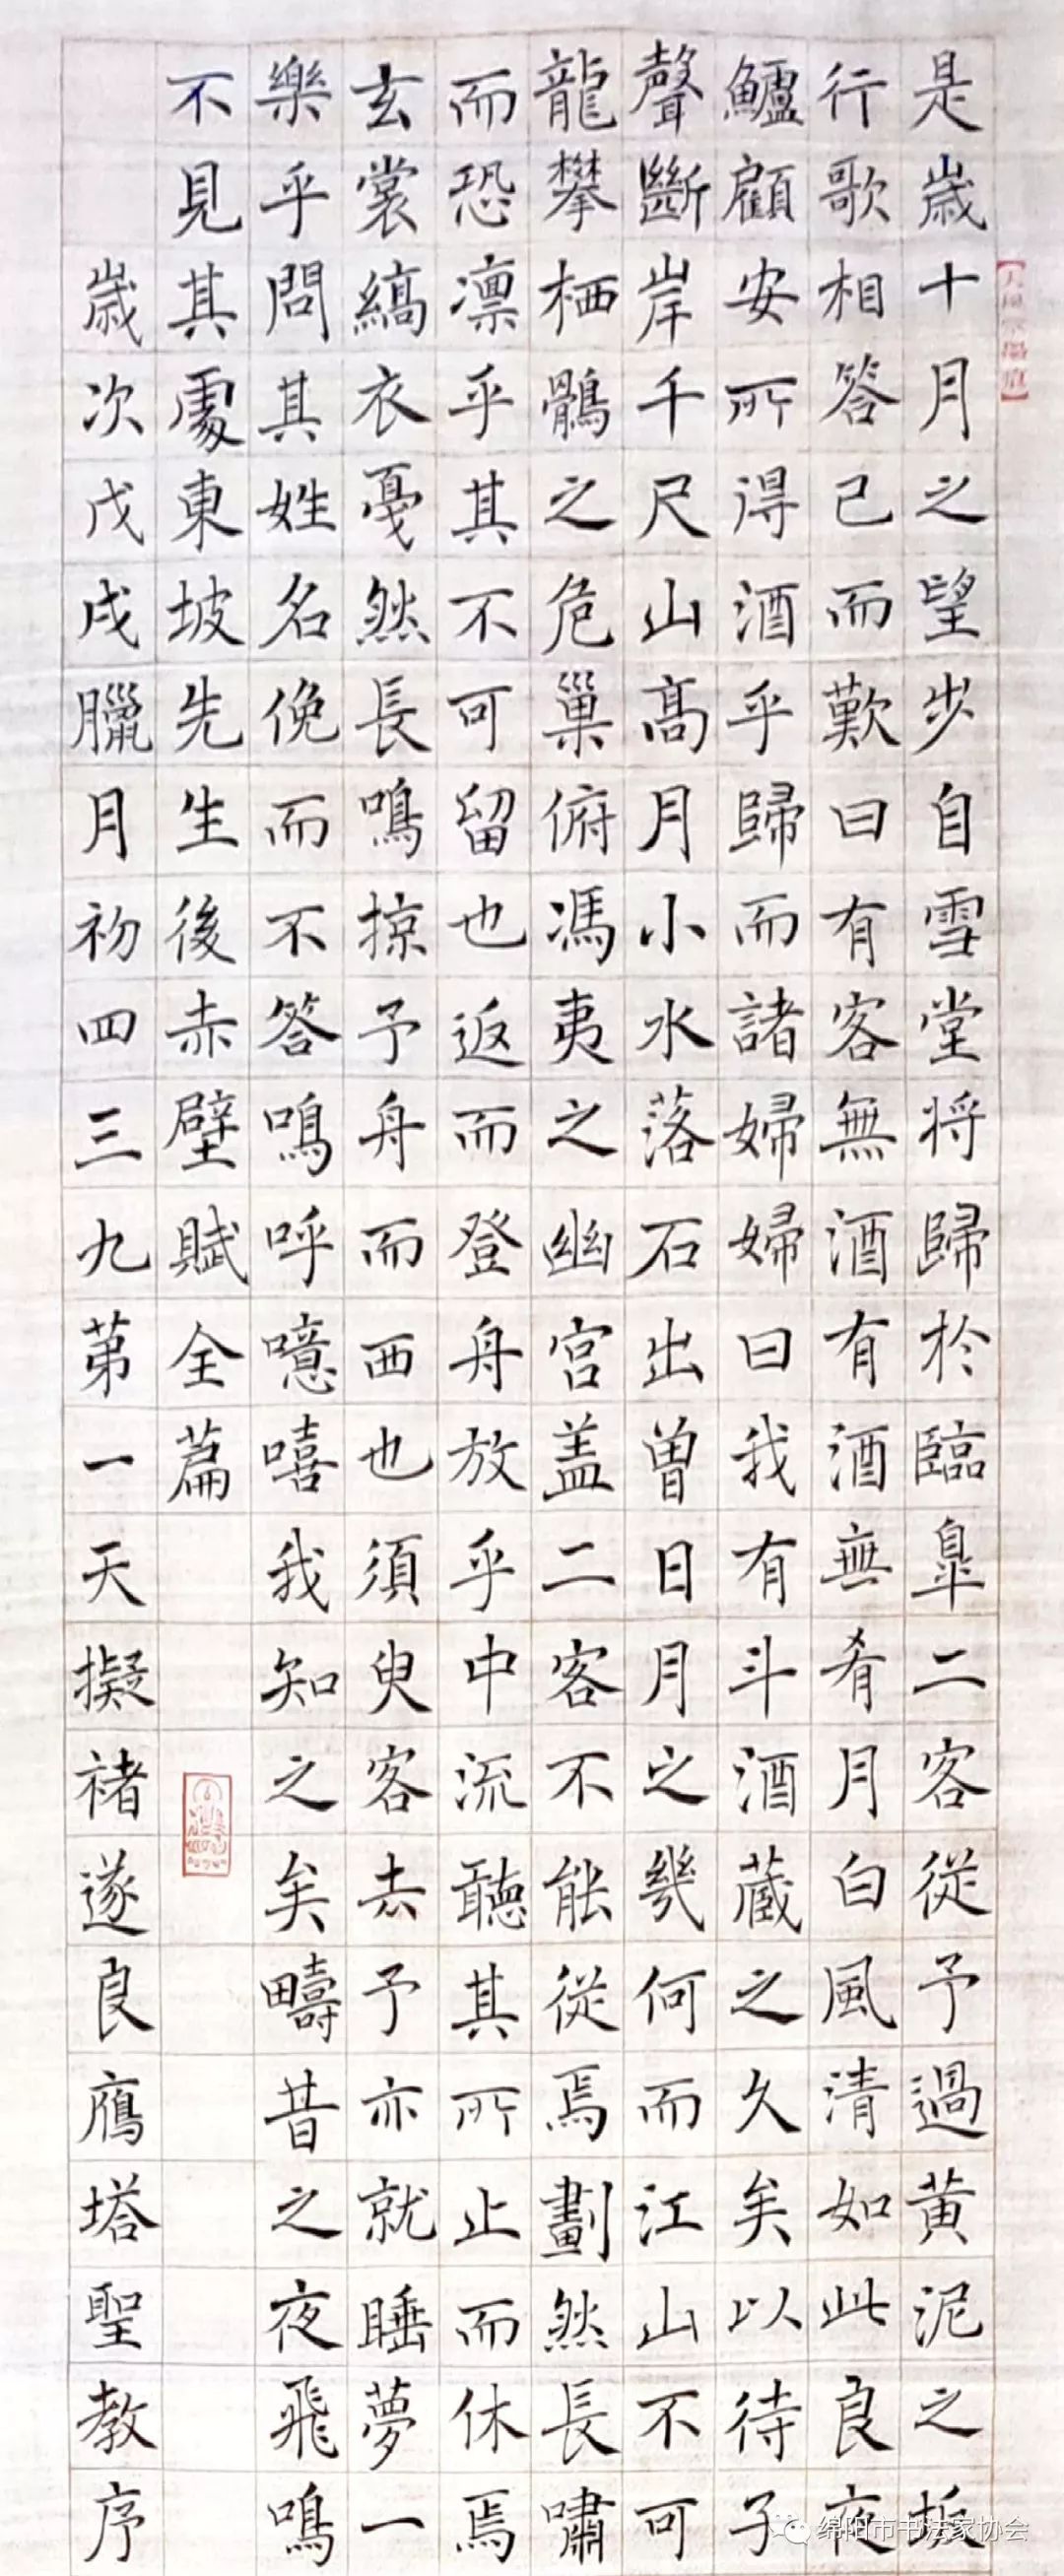 是歲十月之望步自雪堂将歸於臨皐二客從予過黄泥之坂
行歌相答已而歎曰有客無酒有酒無肴月白風清如此良夜
鱸顧安所得酒乎歸而諸婦婦曰我有斗酒蔵之久矣以待子
聲斷岸千尺山髙月小水落石出曽日月之幾何而江山不可
龍攀栖鶻之危巢俯馮夷之幽宫盖二客不能從焉劃然長嘯
而恐凛乎其不可留也返而登舟放乎中流聽其所止而休焉
玄裳縞衣戞然長鳴掠予舟而西也須臾客去予亦就睡夢一
樂乎問其姓名俛而不答嗚呼噫嘻我知之矣疇昔之夜飛鳴
不見其處東坡先生後赤壁賦全篇
歲次戊戌臘月初四三九第一天擬褚遂良鴈塔聖教序
绵阳市书法家协会